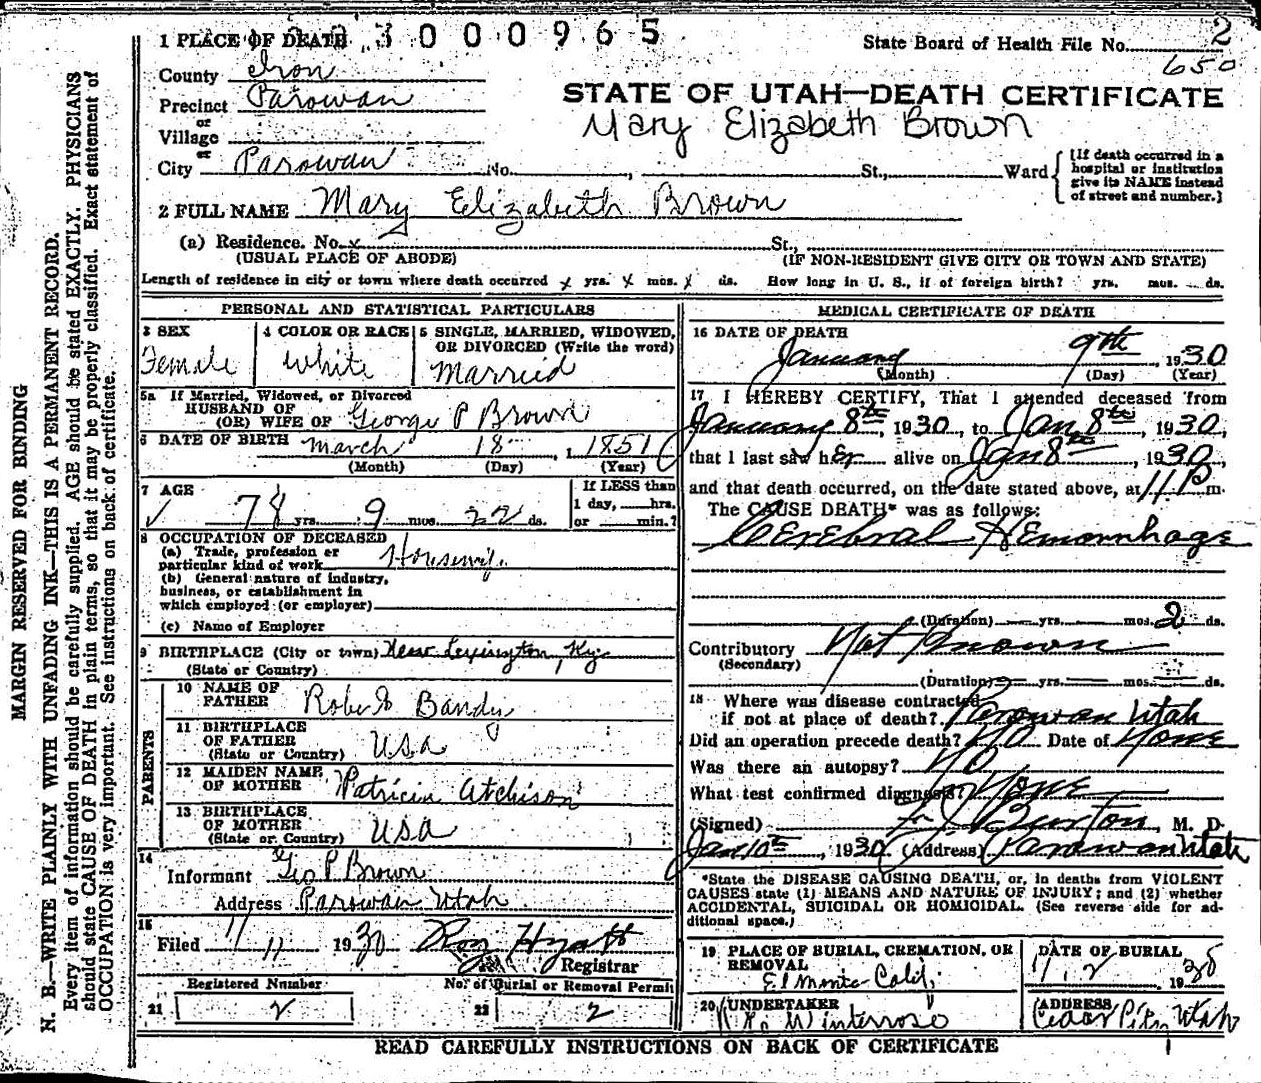 1 PLACE OF DEATH 3 0 0 0 9 6 5
State Board of Health File No. 2
650
County Iron
Precinct Parowan
or
Village
or
City Parowan No. , St., Ward
[If death occurred in a
hospital or institution
give its NAME instead
of street and number.]
STATE OF UTAH—DEATH CERTIFICATE
Mary Elizabeth Brown
2 FULL NAME Mary Elizabeth Brown
(a) Residence. No. x St.,
(USUAL PLACE OF ABODE) (IF NON-RESIDENT GIVE CITY OR TOWN AND STATE)
Length of residence in city or town where death occurred x yrs. x mos. x ds. How long in U. S., if of foreign birth? yrs. mos. ds.
PERSONAL AND STATISTICAL PARTICULARS
3 SEX
Female
4 COLOR OR RACE
White
5 SINGLE, MARRIED, WIDOWED,
OR DIVORCED (Write the word)
Married
5a If Married, Widowed, or Divorced
HUSBAND OF
(OR) WIFE OF George P Brown
6 DATE OF BIRTH March 18 1851
(Month) (Day) (Year)
7 AGE
78 yrs. 9 mos. 22 ds.
If LESS than
1 day, hrs.
or min.?
8 OCCUPATION OF DECEASED
(a) Trade, profession or
particular kind of work Housewife
(b) General nature of industry,
business, or establishment in
which employed (or employer)
(c) Name of Employer
9 BIRTHPLACE (City or town) New Lexington, Ky.
(State or Country)
PARENTS
10 NAME OF
FATHER Robert Bandy
11 BIRTHPLACE
OF FATHER
(State or Country) USA
12 MAIDEN NAME
OF MOTHER Patricia Atchison
13 BIRTHPLACE
OF MOTHER
(State or Country) USA
14
Informant Geo P Brown
Address Parowan Utah
15
Filed 1/11 1930 Roy Hyatt
Registrar
Registered Number
21 2
No. of Burial or Removal Permit
22 2
MEDICAL CERTIFICATE OF DEATH
16 DATE OF DEATH
January 9th, 1930
(Month) (Day) (Year)
17 I HEREBY CERTIFY, That I attended deceased from
January 8th, 1930, to Jan 8th, 1930,
that I last saw her alive on Jan 8th, 1930,
and that death occurred, on the date stated above, at 11 P m.
The CAUSE DEATH* was as follows:
Cerebral Hemorrhage
(Duration) yrs. mos. 2 ds.
Contributory Not Known
(Secondary)
(Duration) yrs. mos. ds.
18 Where was disease contracted
if not at place of death? Parowan Utah
Did an operation precede death? No Date of None
Was there an autopsy? No
What test confirmed diagnosis? None
(Signed) Burton, M. D.
Jan 10th, 1930 (Address) Parowan Utah
*State the DISEASE CAUSING DEATH, or, in deaths from VIOLENT
CAUSES state (1) MEANS AND NATURE OF INJURY; and (2) whether
ACCIDENTAL, SUICIDAL OR HOMICIDAL. (See reverse side for ad-
ditional space.)
19 PLACE OF BURIAL, CREMATION, OR
REMOVAL
El Monte Calif.
DATE OF BURIAL
1/12 1930
20 UNDERTAKER
Winterrose
ADDRESS
Cedar City, Utah
READ CAREFULLY INSTRUCTIONS ON BACK OF CERTIFICATE
MARGIN RESERVED FOR BINDING
N. B.—WRITE PLAINLY WITH UNFADING INK—THIS IS A PERMANENT RECORD.
Every item of information should be carefully supplied. AGE should be stated EXACTLY. PHYSICIANS
should state CAUSE OF DEATH in plain terms, so that it may be properly classified. Exact statement of
OCCUPATION is very important. See instructions on back of certificate.